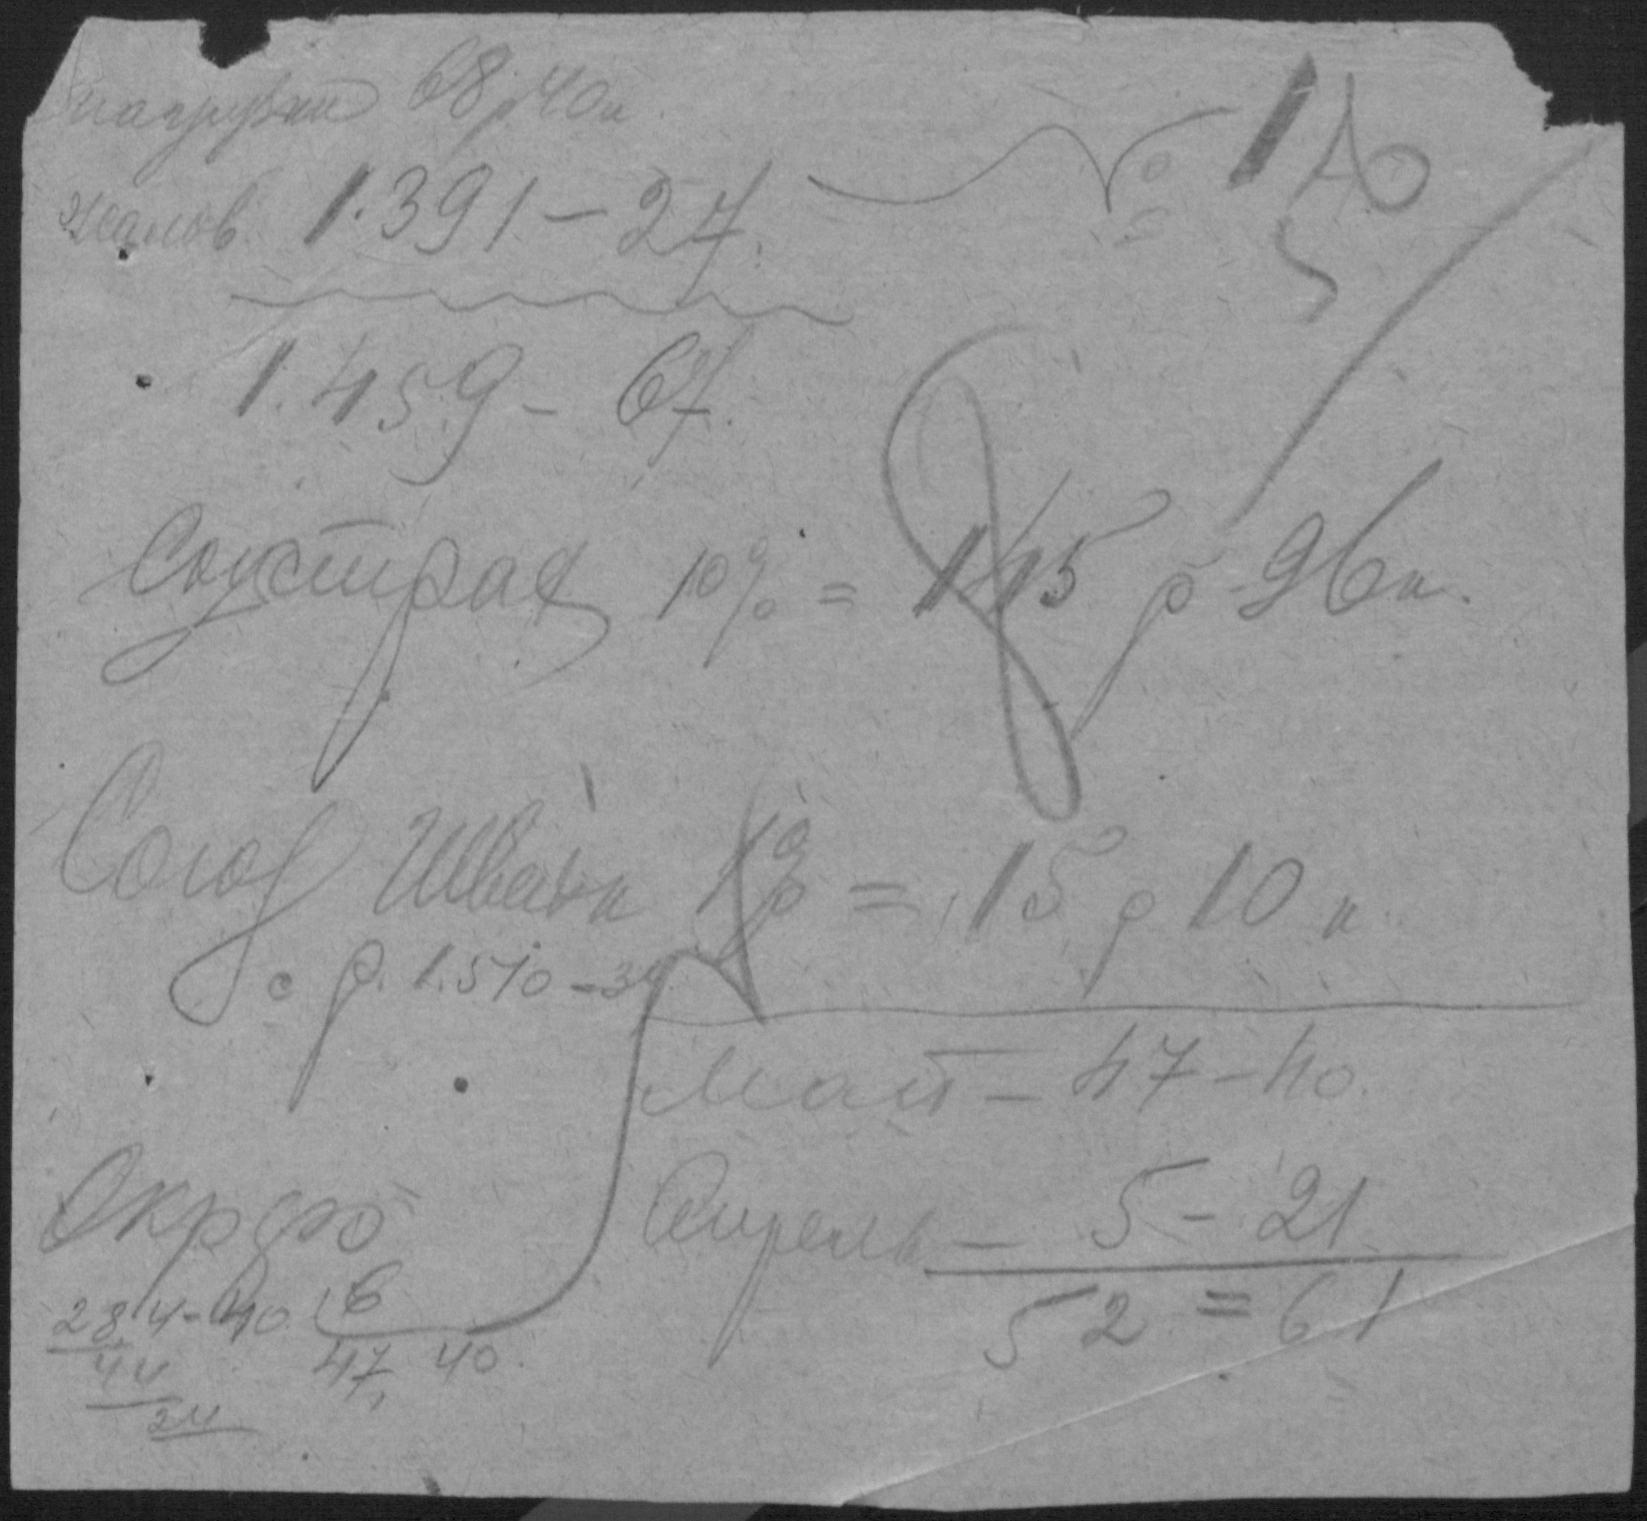 нагрузки 68 р 40 к.
жалов. 1.391 – 27.
1.459 – 67.
Соцстрах 10% = 145 р 96 к.
Союз Швейн 1% = 15 р 10 к.
с р. 1.510 – 34
май – 47 – 40.
Окрфо Апрель – 5 – 21
284 – 40 6 52 = 61
44 47, 40.
24